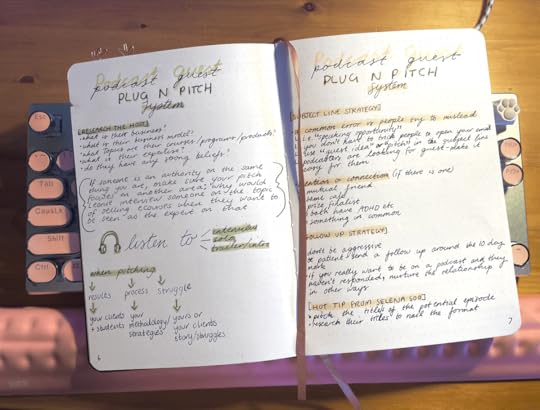 Podcast Guest
podcast guest
PLUG N PITCH
system
[RESEARCH THE HOST]
• what is their business?
• what is their business model?
• what topics are their courses/programs/products?
• what is their expertise?
• do they have any strong beliefs?
If someone is an authority on the same
thing you are, make sure your pitch
focuses on another area; "Why would
I want interview someone on the topic
of selling courses when they want to
be seen as the expert on that
listen to
interviews
solo
trailer/intro
when pitching
results process struggle
your clients your yours or
+ students methodology/ your clients
strategies story/struggles
6
Podcast Guest
podcast guest
PLUG N PITCH
system
[SUBJECT LINE STRATEGY]
a common error is people try to mislead
i.e. "speaking opportunity"
you don't have to trick people to open your email
use "guest idea" or "pitch" in the subject line
podcasters are looking for guests - make it
easy for them
mention a connection (if there is one)
mutual friend
same
prize finalist
both have ADHD etc
something in common
FOLLOW UP STRATEGY
don't be aggressive
be patient - send a follow up around the 10 day
mark
if you really want to be on a podcast and they
haven't responded, nurture the relationship
in other ways
[HOT TIP FROM SELENA SOO]
• pitch the titles of the potential episode
• research their titles to nail the format
7
Esc
Tab
CapsLk
Shift
Ctrl
PgUp
PgDn